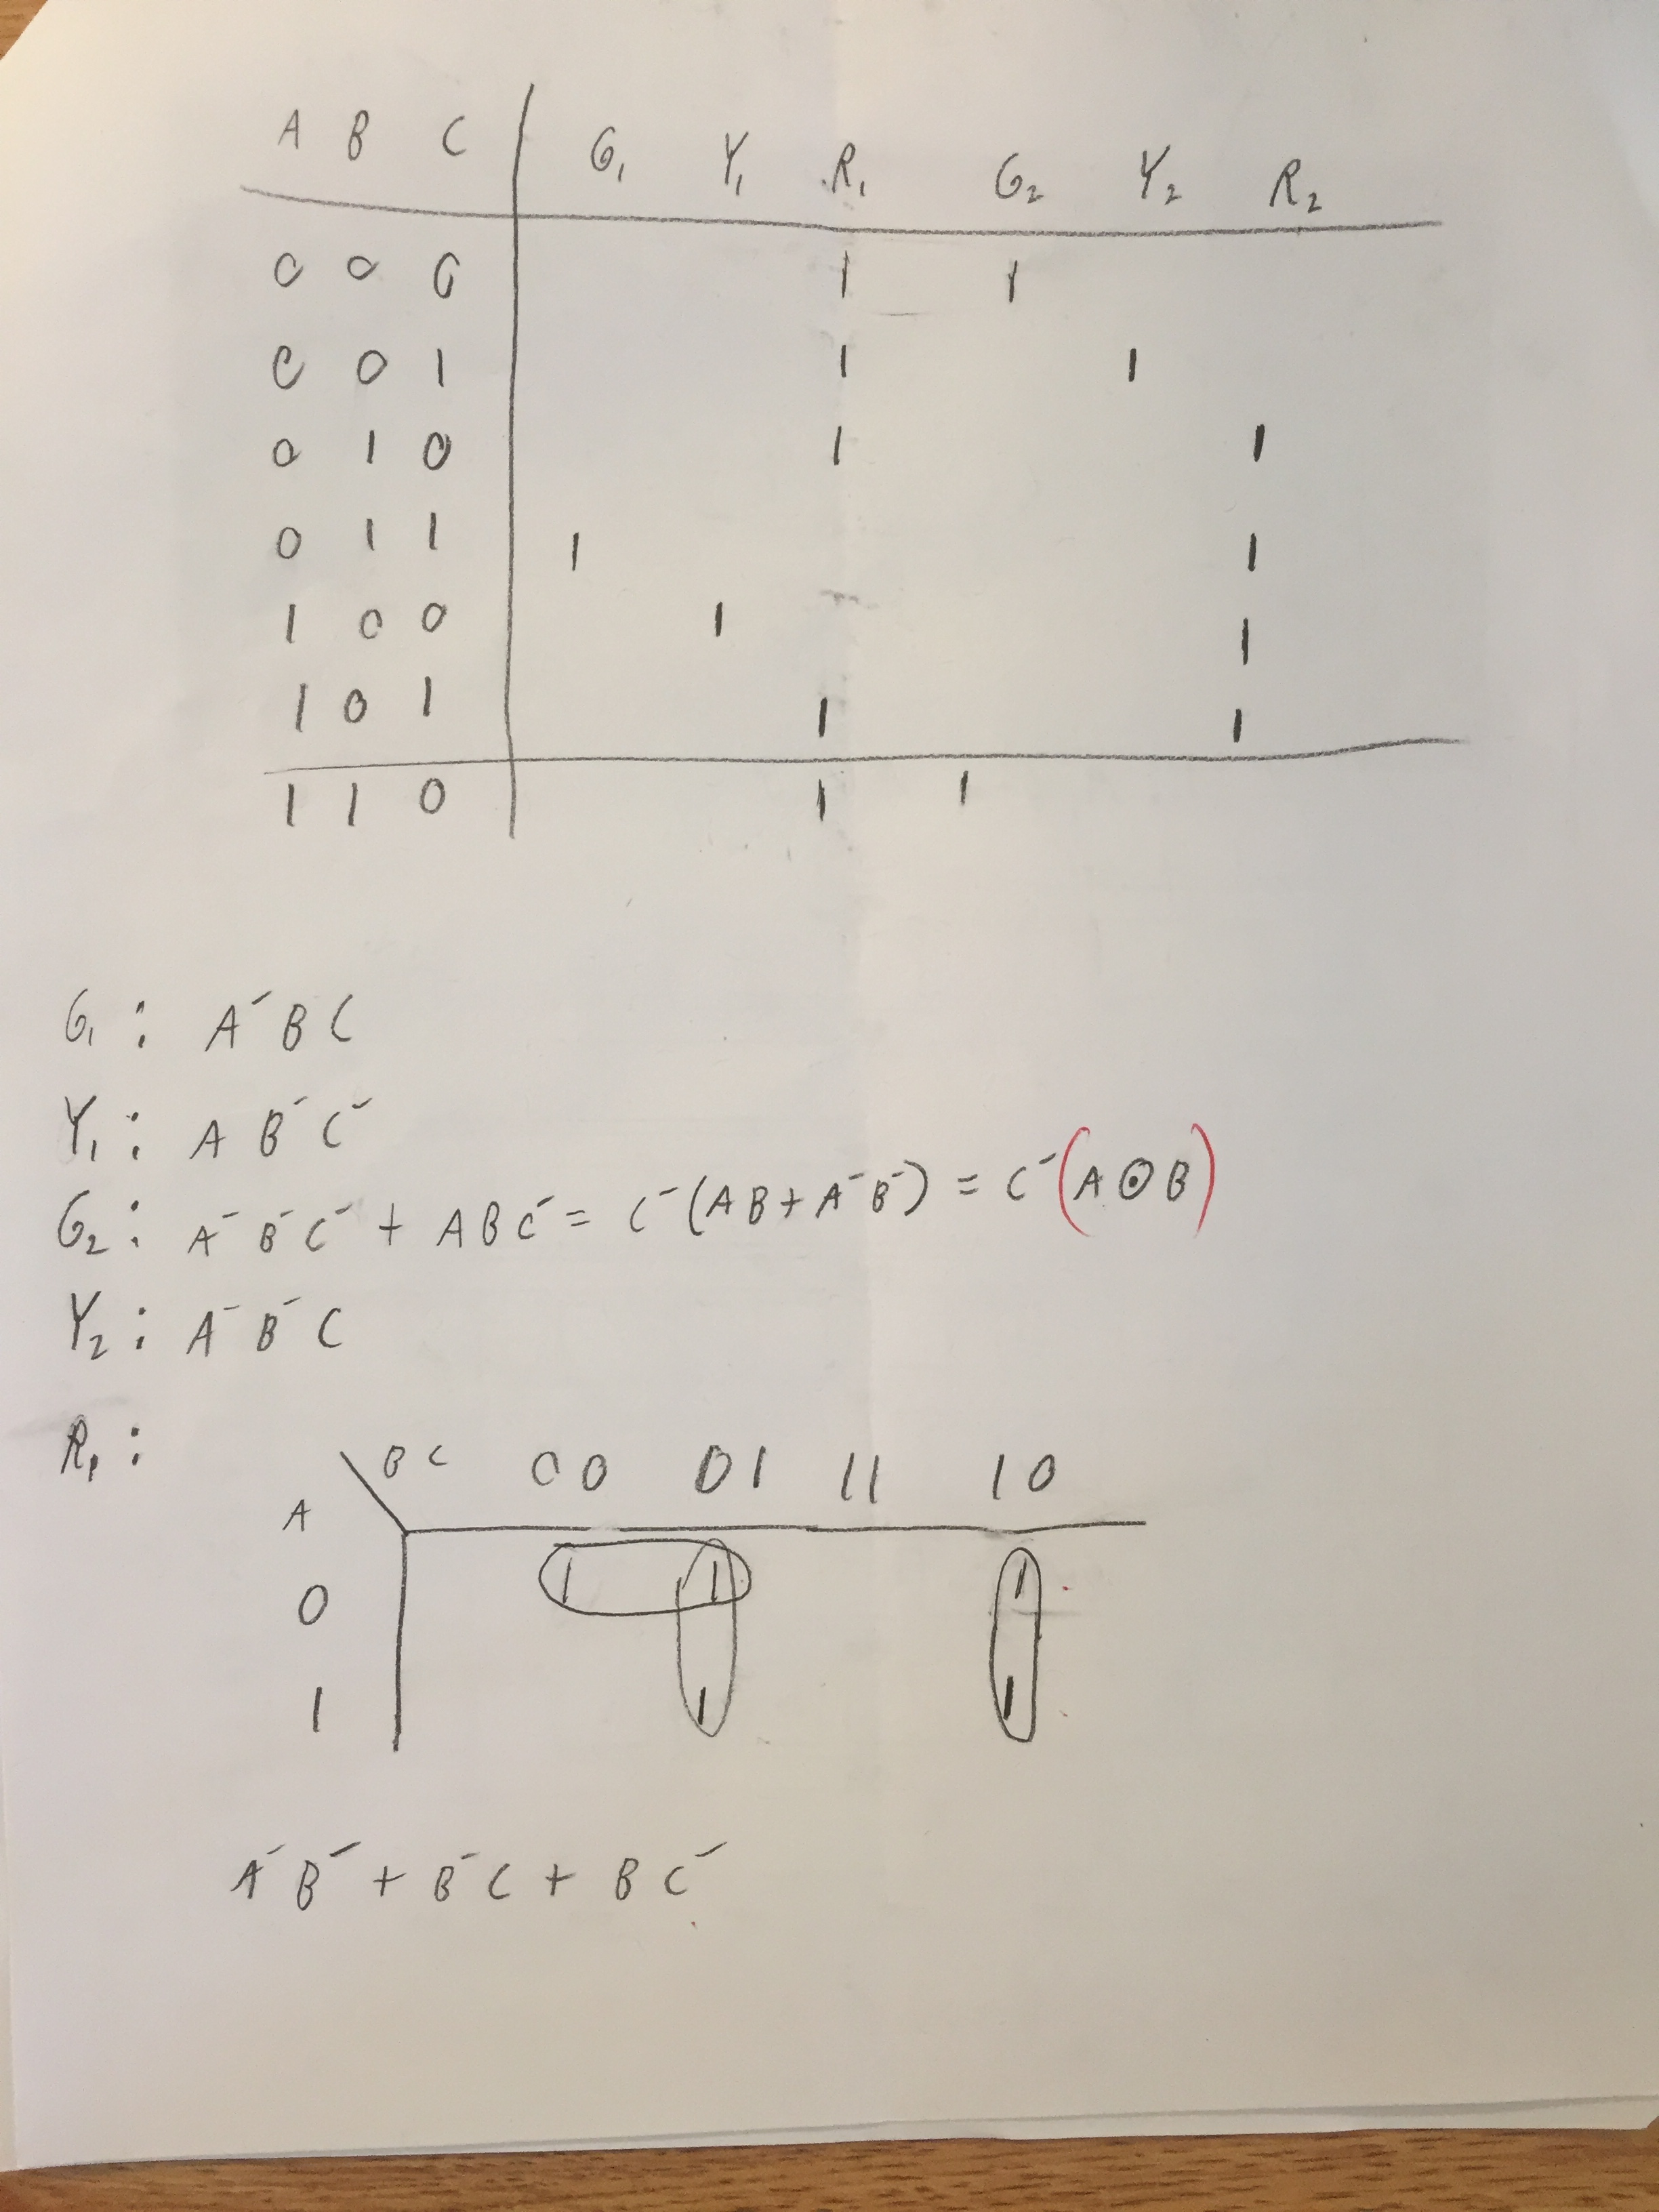 A B C G₁ Y₁ R₁ G₂ Y₂ R₂
0 0 0 1 1
0 0 1 1 1
0 1 0 1 1
0 1 1 1 1
1 0 0 1 1
1 0 1 1 1
1 1 0 1 1
G₁ : A⁻ B C
Y₁ : A B⁻ C⁻
G₂ : A⁻ B⁻ C⁻ + A B C⁻ = C⁻ (A B + A⁻ B⁻) = C⁻ (A ⊙ B)
Y₂ : A⁻ B⁻ C
R₁ :
B C 00 01 11 10
A
0 1 1 1
1 1 1
A⁻ B⁻ + B⁻ C + B C⁻